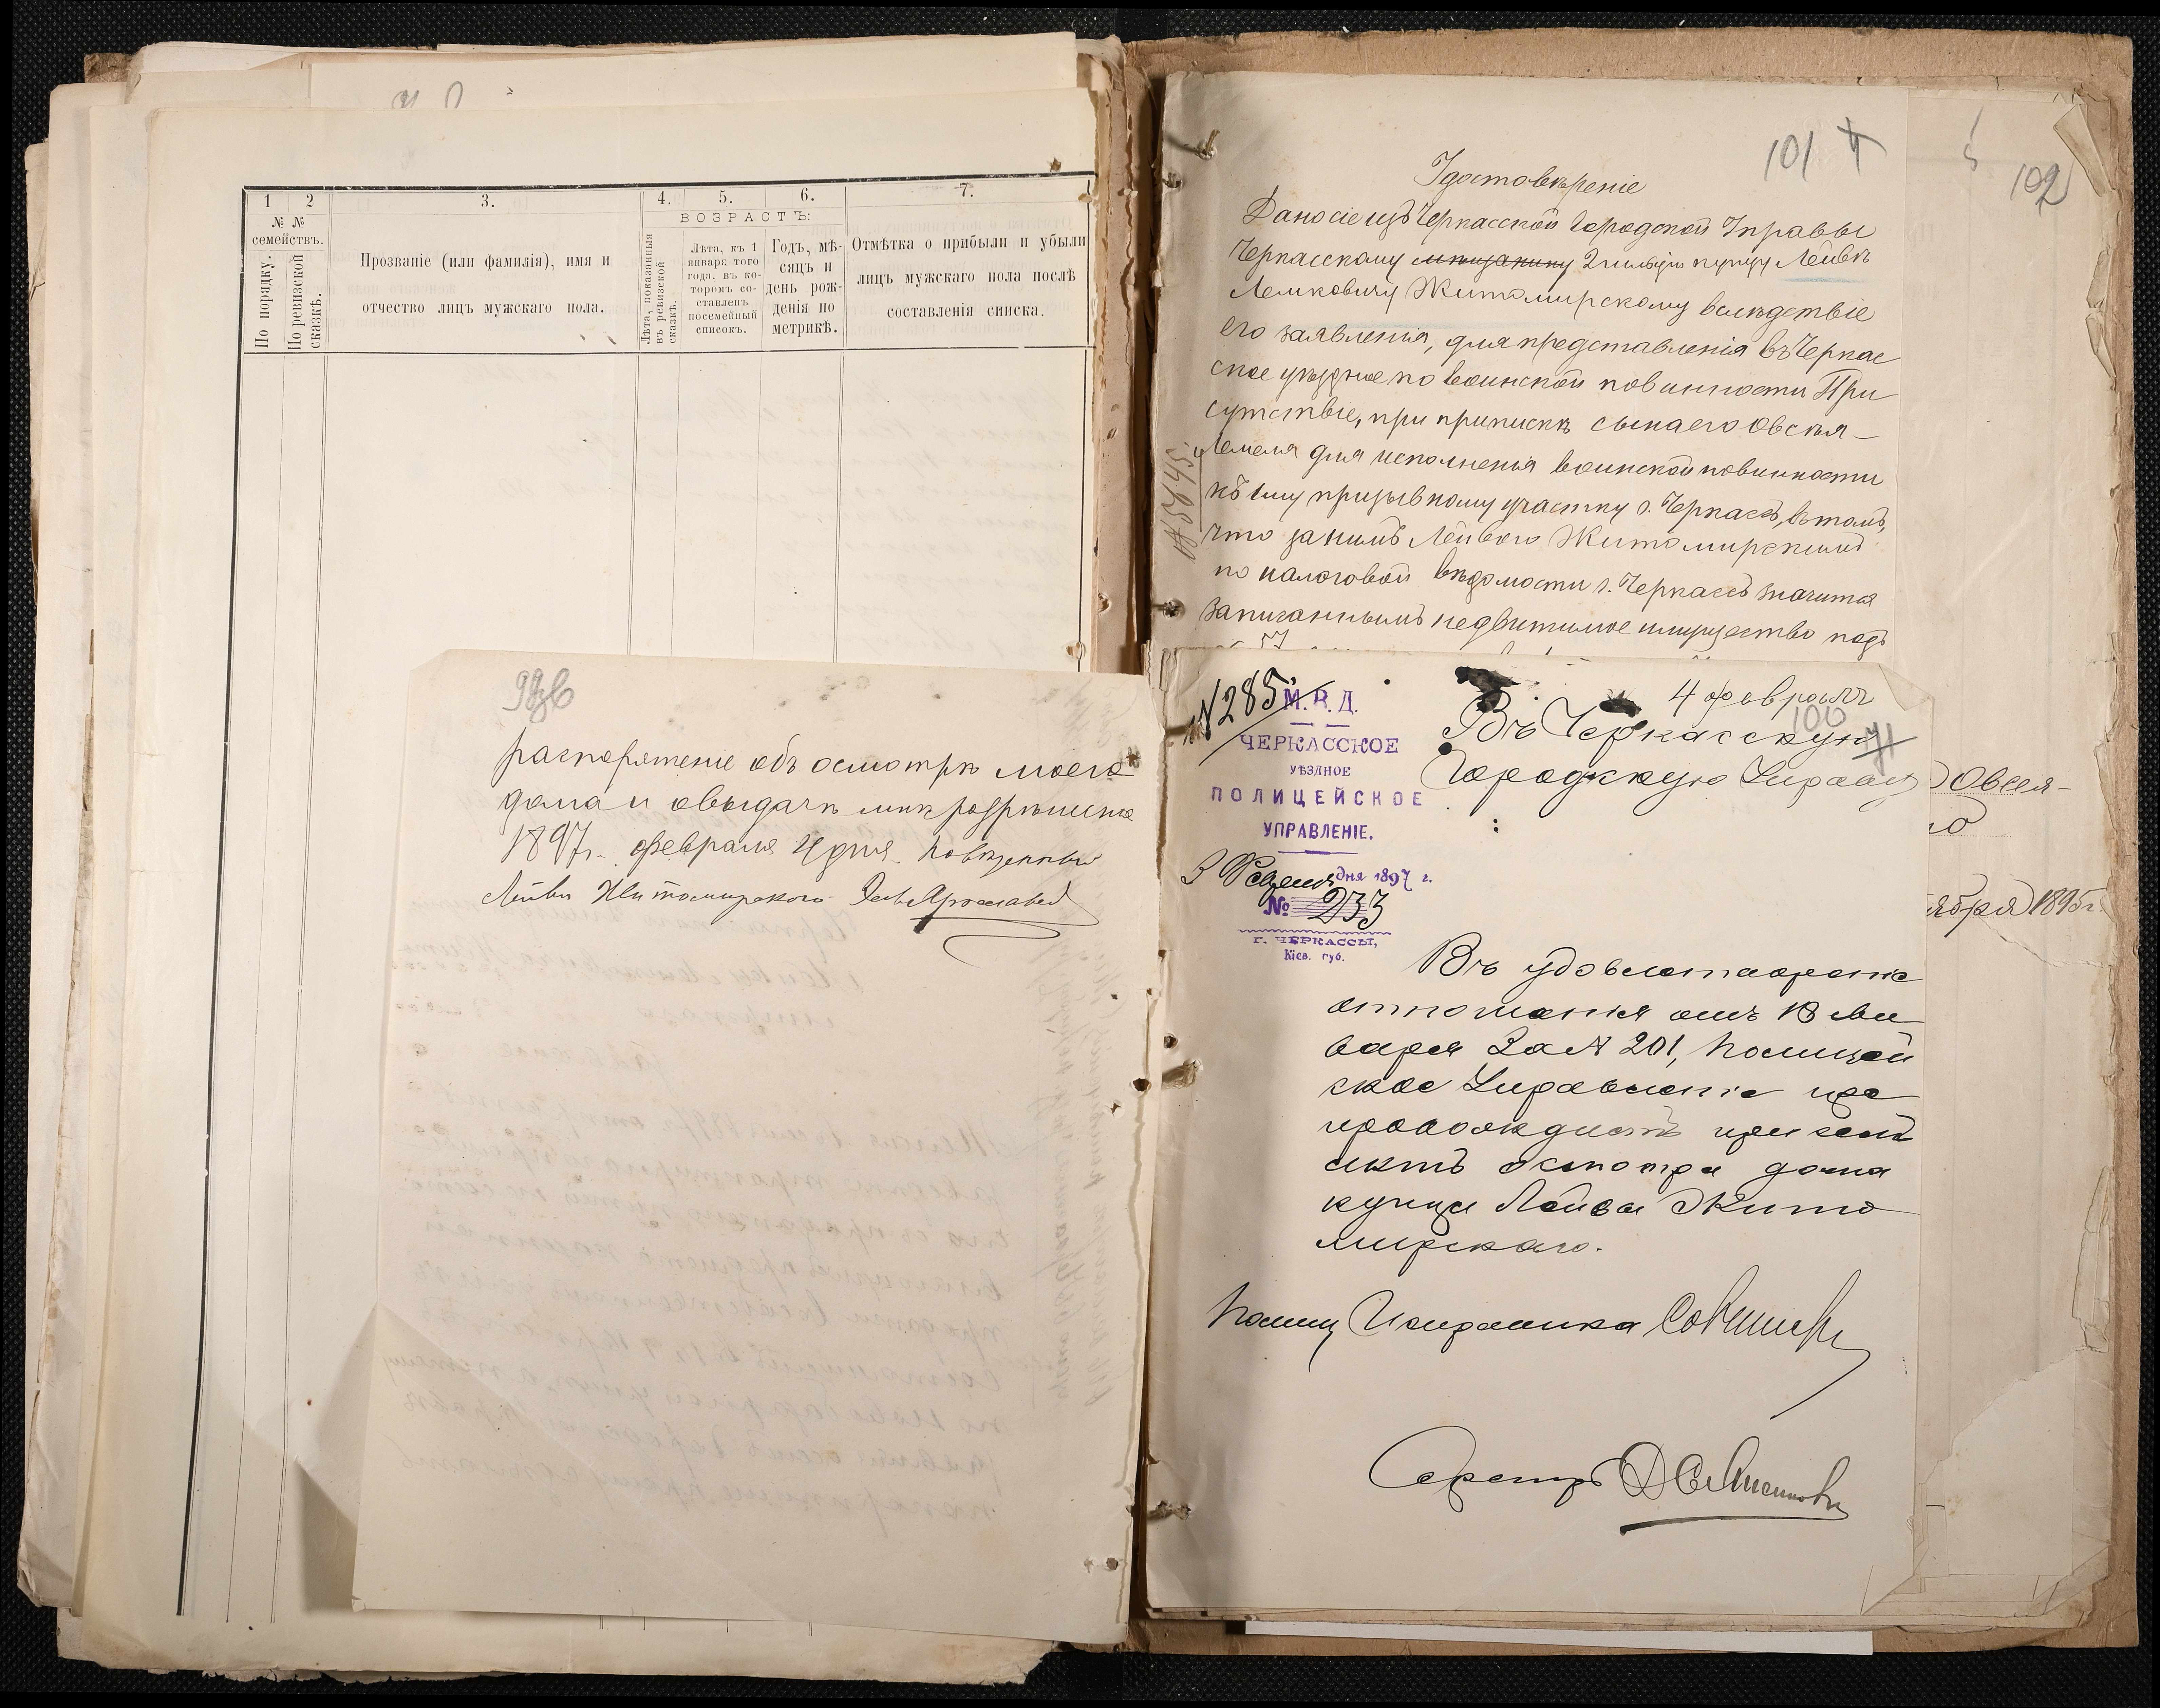 1
2
3.
4.
5.
6.
7.
№ №
семействъ.
По порядку.
По ревизской
сказкѣ.
Прозваніе (или фамилія), имя и
отчество лицъ мужскаго пола.
ВОЗРАСТЪ:
Лѣта, показанныя
въ ревизской
сказкѣ.
Лѣта, къ 1
января того
года, въ ко-
торомъ со-
ставленъ
посемейный
списокъ.
Годъ, мѣ-
сяцъ и
день рож-
денія по
метрикѣ.
Отмѣтка о прибыли и убыли
лицъ мужскаго пола послѣ
составленія списка.
распоряженіе объ осмотрѣ моего
дома и овыдачѣ мнѣ разрѣшенія
1897 г. февраля 4 дня. Повѣренный
Лейбы Житомирскаго
101
Удостовѣреніе
Дано сіе изъ Черкасской Городской Управы
Черкасскому мѣщанину 2 гильдіи купцу Лейбѣ
Лемковичу Житомирскому вслѣдствіе
его заявленія, для представленія въ Черкас
ское уѣздное по воинской повинности При
сутствіе, при припискѣ сына его Овсѣя–
Лемеля для исполненія воинской повинности
къ 1му призывному участку г. Черкассъ, въ томъ,
что за нимъ Лейбою Житомирскимъ
по налоговой вѣдомости г. Черкассъ значится
записаннымъ недвижимое имущество подъ
102
Овсея-
ября 1895 г.
№ 285
М. В. Д.
ЧЕРКАССКОЕ
УѢЗДНОЕ
ПОЛИЦЕЙСКОЕ
УПРАВЛЕНІЕ.
3 Февраля дня 1897 г.
№ 233
Г. ЧЕРКАССЫ,
Кіев. губ.
4 февраля
100
Въ Черкасскую
Городскую Управу
Въ удовлетвореніе
отношенія отъ 13 Ян
варя за № 201, Полицей
ское Управленіе пре
провождаетъ при семъ
актъ осмотра дома
купца Лейбы Жито
мирскаго.
Помощ Исправника
Секретарь